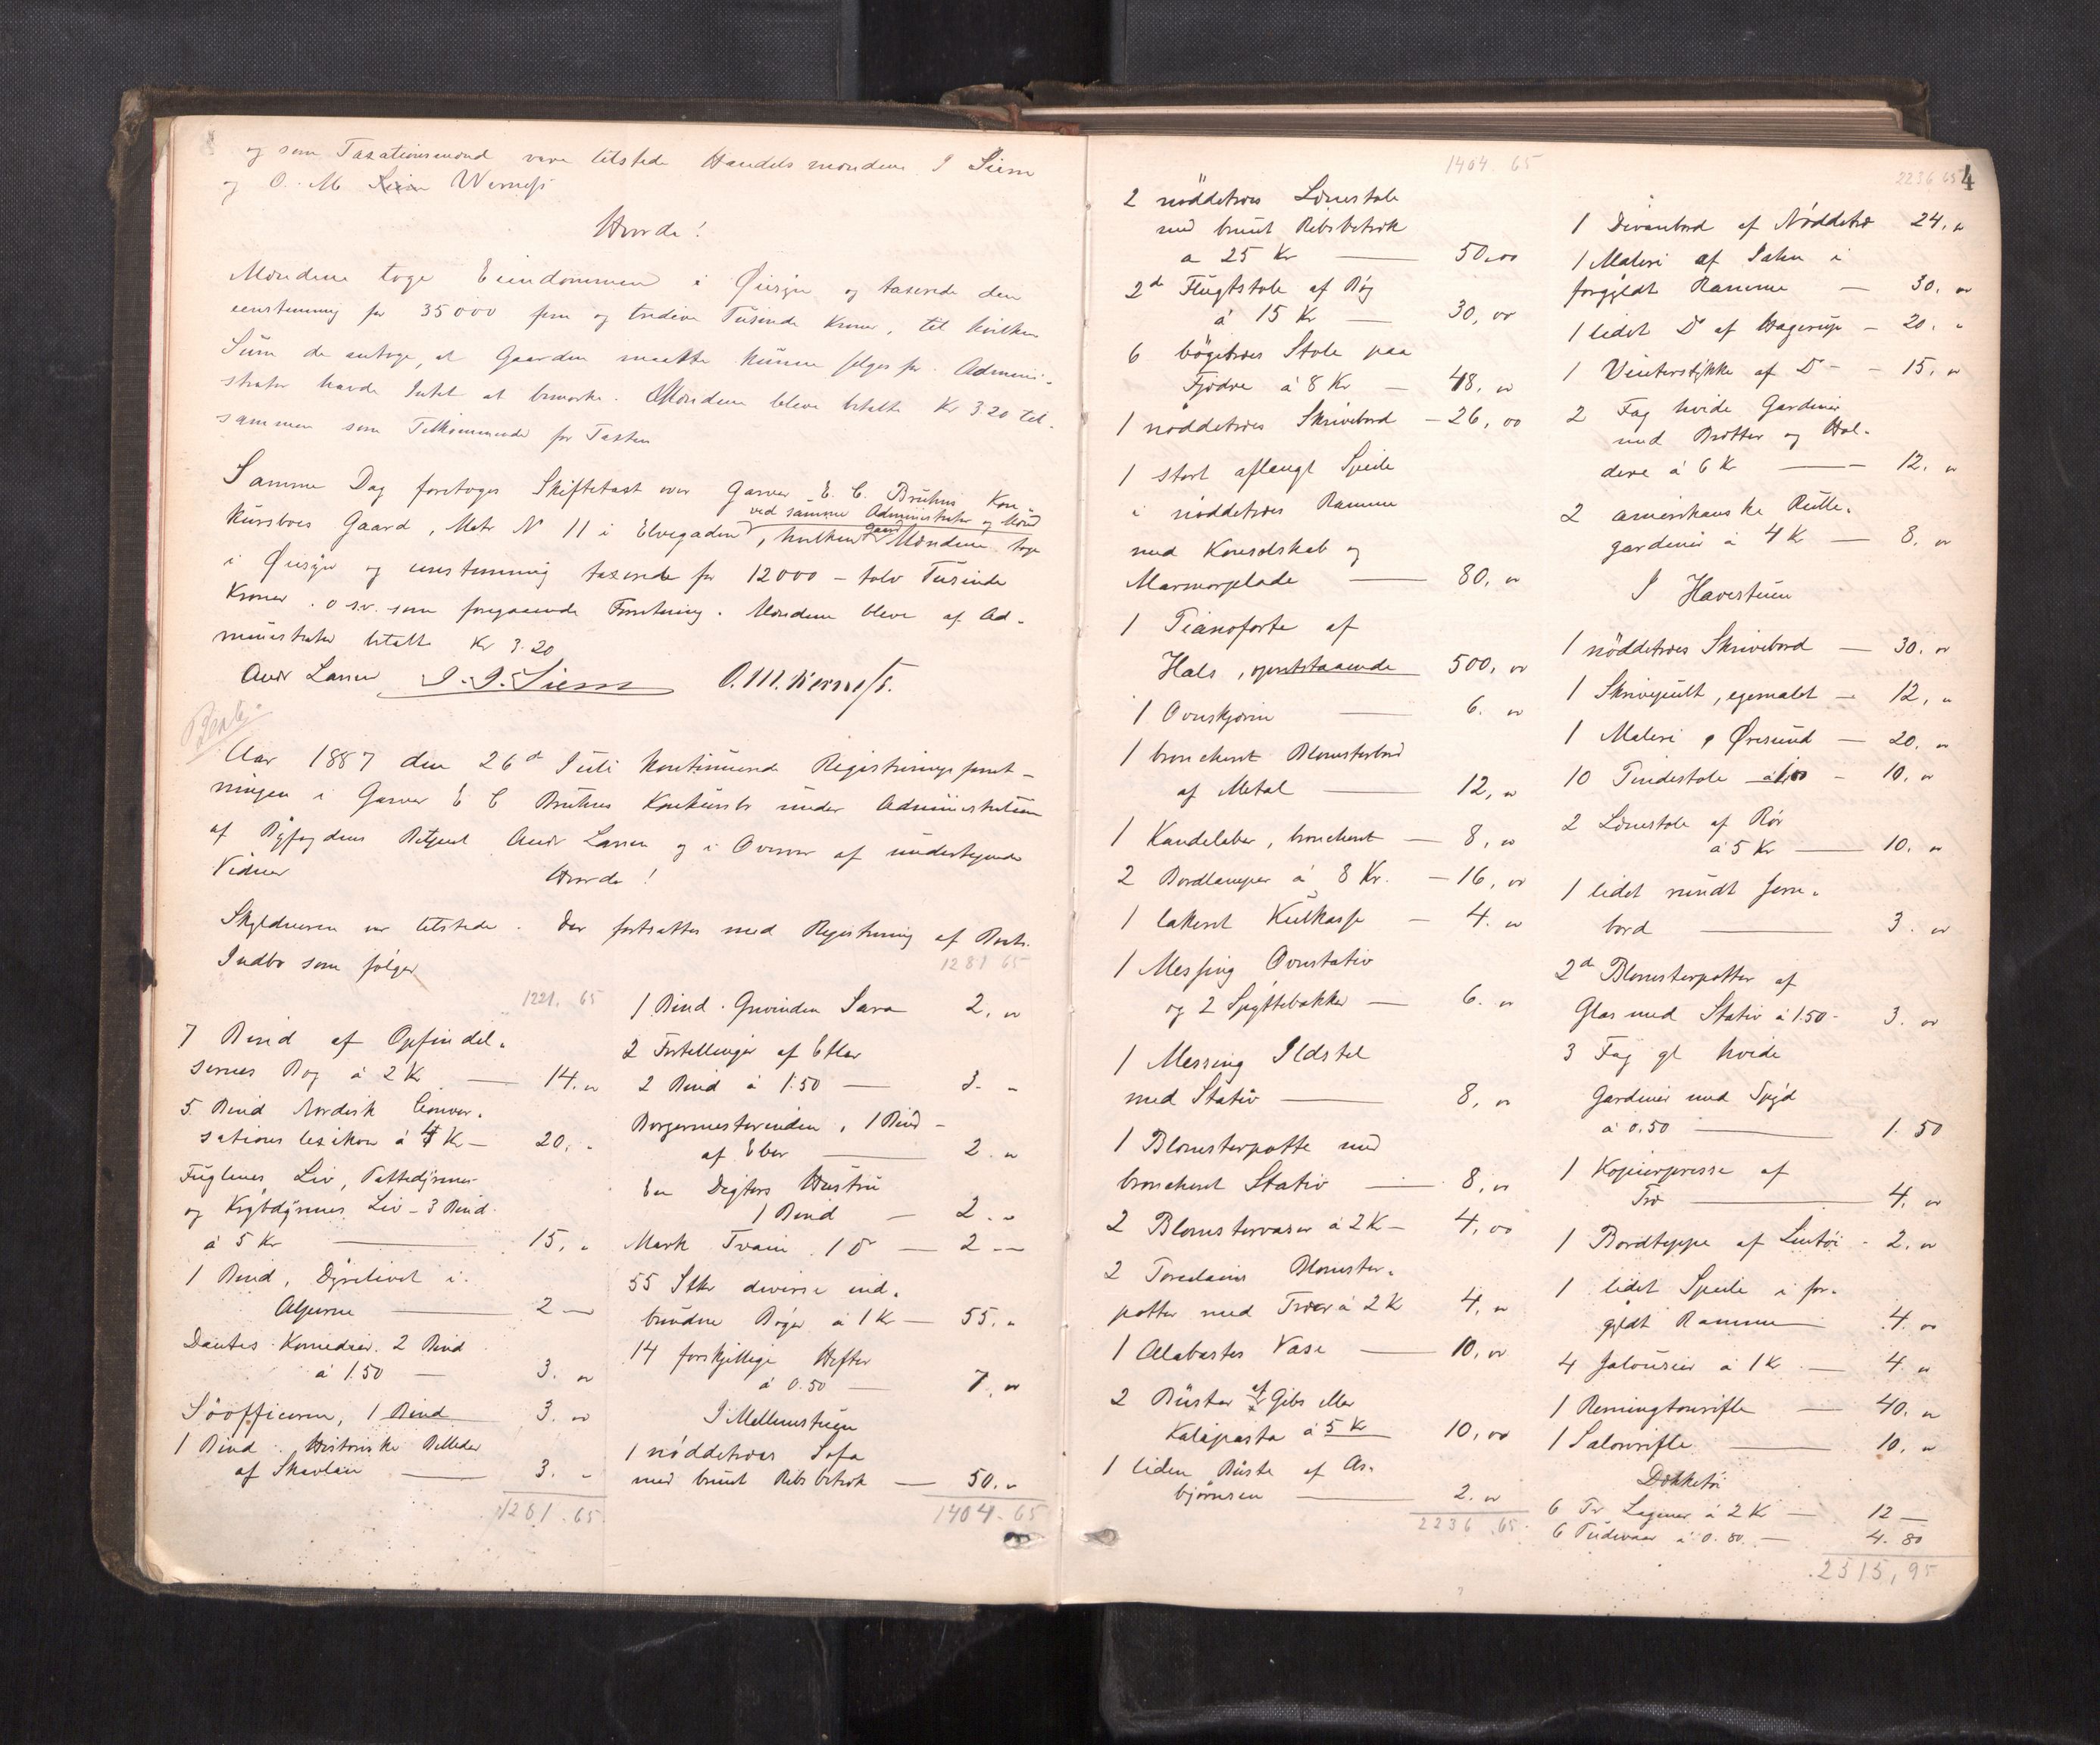 og som Taxationsmænd vare tilstede Handelsmændene I Siem
og O. M. Werness
Hvorda!
Mændene toge Eiendommen i Øiesyn og taxerede den
eenstemmig for 35000 fem og tredive Tusinde Kroner, til hvilken
Sum de antoge, at Gaarden maatte kunne sælges for. Admini-
strator havde Intet at bemærke. Mændene bleve betalte Kr 3.20 til-
sammen som Tilkommende for Taxten
Samme Dag foretoges Skiftetaxt over Garver E. C. Bruhns Kon-
ved samme Administrator og Mænd
kursboes Gaard, Matr N 11 i Elvegaden, hvilken Gaard Mændene toge
i Øiesyn og eenstemmig taxerede for 12000 - tolv Tusinde
Kroner. o.s.v. som foregaaende Forretning. Mændene bleve af Ad-
ministrator betalte Kr 3.20
Andr Larsen I. I. Siem O. M. Werness.
Aar 1887 den 26d Juli kontinuerede Registreringsforret-
ningen i Garver E C Bruhns Konkursbo under Administration
af Byfogdens Betjent Andr Larsen og i Overvær af undertegnede
Vidner
Hvorda!
Skyldneren var tilstede. Der fortsattes med Registrering af Boets
Indbo som følger
1221. 65
7 Bind af Opfindel-
sernes Bog á 2 Kr — 14. "
5 Bind Nordisk Conver-
sations lexikon á 4 Kr — 20. "
Fuglenes Liv, Pattedyrenes
og Krybdyrenes Liv - 3 Bind
á 5 Kr — 15. "
1 Bind, Dyrelivet i
Alperne — 2 —
Dantes Komedier. 2 Bind
á 1.50 — 3. "
Søofficeren, 1 Bind 3. "
1 Bind Historiske Billeder
af Skavlan — 3. "
1281. 65
1281 65
1 Bind Grevinden Sara 2. "
2 Fortellinger af Etlar
2 Bind á 1.50 — 3. "
Borgermesterinden, 1 Bind -
af Ebers — 2. "
En Digters Hustru
1 Bind — 2. "
Mark Tvain. 1 D — 2 —
55 Stkr diverse ind-
bundne Bøger á 1 Kr — 55. "
14 forskjellige Hefter
á 0.50 — 7. "
I Mellemstuen
1 nøddetræes Sofa
med brunt Ribs betræk — 50. "
1404. 65
1404. 65
2 nøddetræes Lænestole
med brunt Ribsbetræk
a 25 Kr — 50,00
2de Flugtstole af Bøg
á 15 Kr — 30,00
6 bøgetræes Stole paa
Fjødre á 8 Kr — 48. "
1 nøddetræes Skrivebord — 26,00
1 stort aflangt Speile
i nøddetræes Ramme
med Konsolskab og
Marmorplade — 80, "
1 Pianoforte af
Hals, opretstaaende 500, "
1 Ovnskjærm — 6. "
1 broncheret Blomsterbord
af Metal — 12, "
1 Kandelaber, broncheret — 8, "
2 Bordlamper á 8 Kr. — 16, "
1 lakeret Kulkasse — 4. "
1 Messing Ovnstativ
og 2 Spyttebakker — 6. "
1 Messing Ildstel
med Stativ — 8, "
1 Blomsterpotte med
broncheret Stativ — 8, "
2 Blomstervaser á 2 K — 4,00
2 Porcelains Blomster-
potter med Træer á 2 K 4, "
1 Alabaster Vase — 10, "
2 Büster af Gibs eller
Kalapasta á 5 Kr 10,00
1 liden Büste af As-
bjørnsen — 2. "
2236. 65
2236 65 4
1 Divanbord af Nøddetræ 24. "
1 Maleri af i
forgyldt Ramme — 30. "
1 lidet D af Hagerup — 20. "
1 Vinterstykke af D — 15. "
2 Fag hvide Gardiner
med Bretter og Hol-
dere á 6 Kr — 12. "
2 amerikanske Rulle-
gardiner á 4 K — 8. "
I Havestuen
1 nøddetræes Skrivebord — 30. "
1 Skrivepult, egemalet — 12, "
1 Maleri Øresund — 20. "
10 Pindestole á 1,00 — 10. "
2 Lænestole af Rør
á 5 Kr — 10. "
1 lidet rundt Jern-
bord — 3. "
2de Blomsterpotter af
Glas med Stativ á 1.50 - 3. "
3 Fag gl hvide
Gardiner med Spyd
á 0.50 — 1. 50
1 Kopierpresse af
Træ — 4. "
1 Bordteppe af Lintøi - 2. "
1 lidet Speile i for-
gyldt Ramme — 4. "
4 Jalousier á 1 Kr — 4. "
1 Remingtonrifle — 40. "
1 Salonrifle — 10. "
Dækketøi
6 Pr Lagener á 2 Kr — 12 —
6 Pudevaar á 0.80. — 4. 80
2515,95